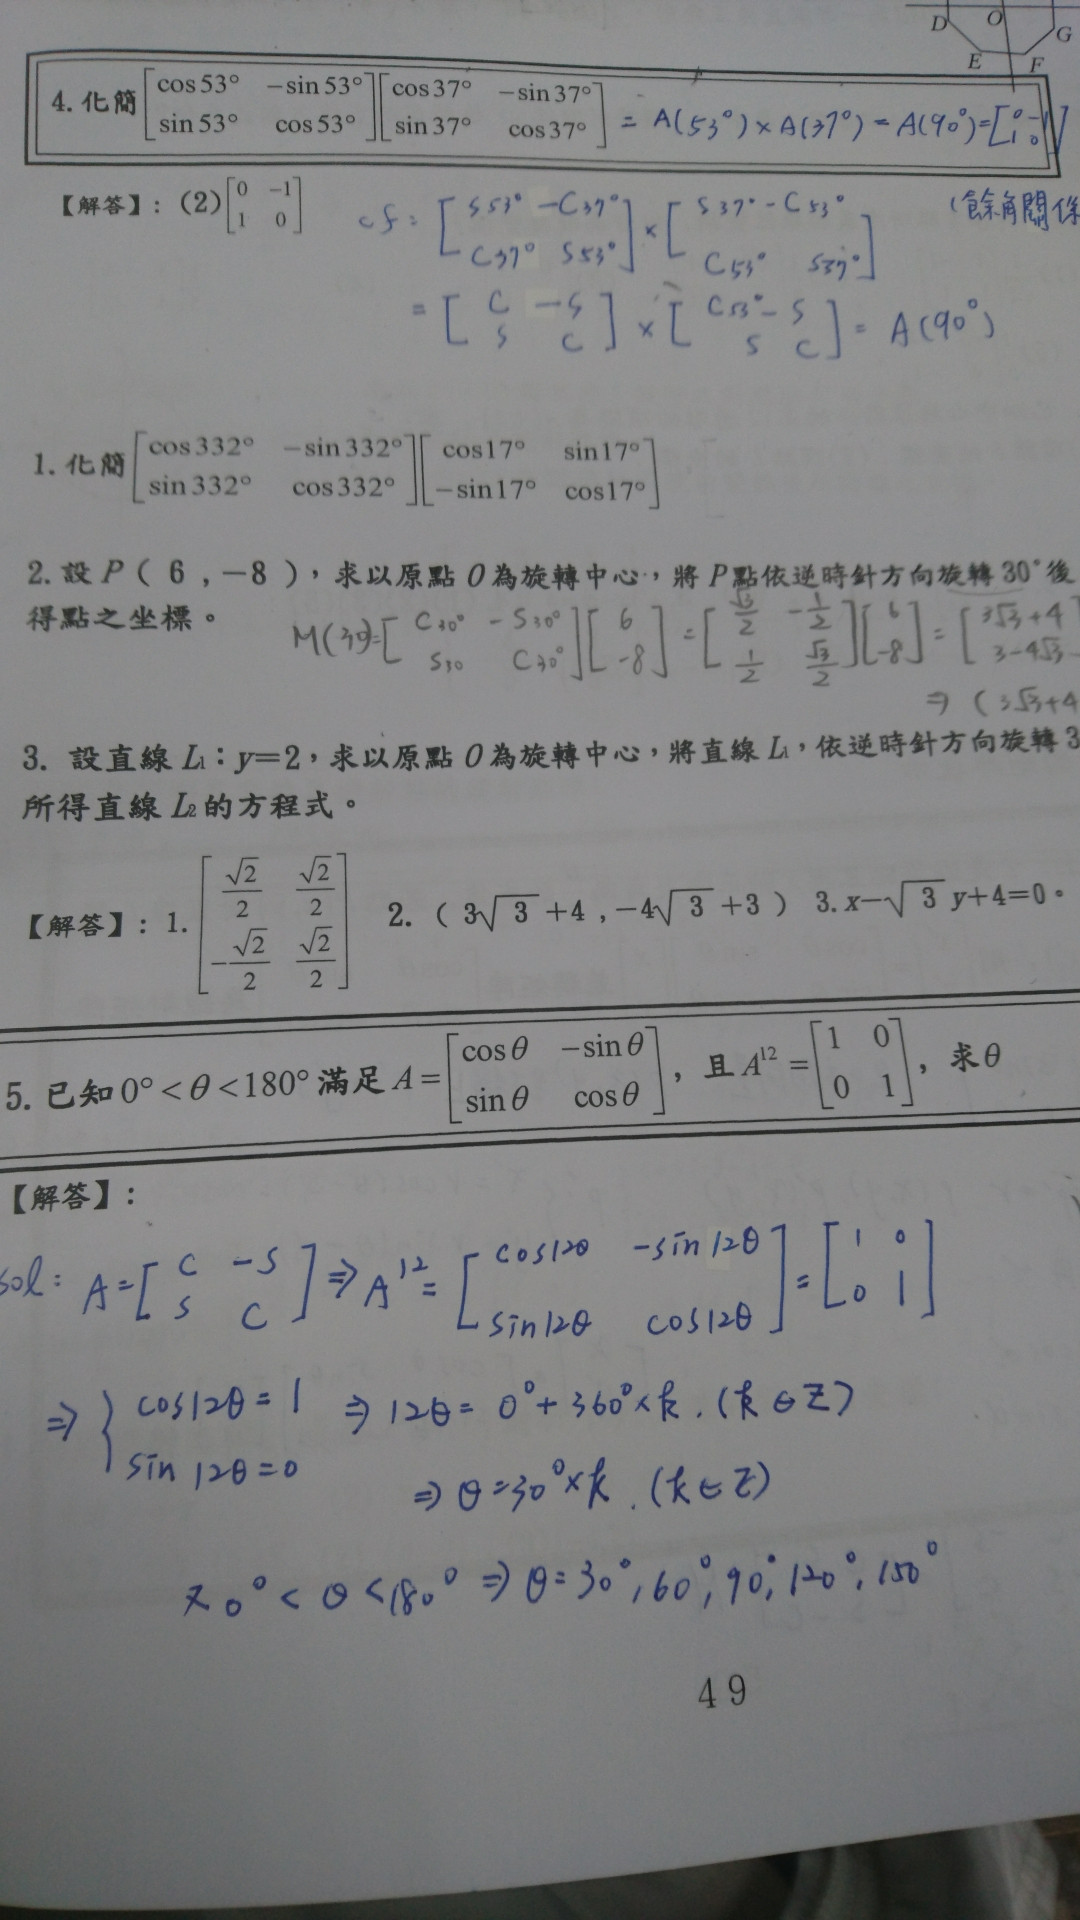 D O G
E F
4. 化簡 [cos53° −sin53° ; sin53° cos53°][cos37° −sin37° ; sin37° cos37°] = A(53°)×A(37°) = A(90°)=[0 -1 ; 1 0]
【解答】：(2)[0 −1 ; 1 0]
cf: [S53° -C37° ; C37° S53°]×[S37° -C53° ; C53° S37°] (餘角關係
= [C -S ; S C]×[C53° -S ; S C] = A(90°)
1. 化簡 [cos332° −sin332° ; sin332° cos332°][cos17° sin17° ; −sin17° cos17°]
2. 設 P ( 6 , −8 )，求以原點 O 為旋轉中心，將 P點依逆時針方向旋轉 30° 後
得點之坐標。
M(30)=[C30° -S30° ; S30 C30°][6 ; -8] = [√3/2 -1/2 ; 1/2 √3/2][6 ; -8] = [3√3+4 ; 3-4√3
⇒ (3√3+4
3. 設直線 L₁：y=2，求以原點 O 為旋轉中心，將直線 L₁，依逆時針方向旋轉 3
所得直線 L₂ 的方程式。
【解答】：1. [√2/2 √2/2 ; −√2/2 √2/2] 2. ( 3√3 +4 , −4√3 +3 ) 3. x−√3 y+4=0。
5. 已知 0° < θ < 180° 滿足 A = [cosθ −sinθ ; sinθ cosθ]，且 A¹² = [1 0 ; 0 1]，求θ
【解答】：
sol: A=[C -S ; S C] ⇒ A¹² = [cos12θ -sin12θ ; sin12θ cos12θ] = [1 0 ; 0 1]
⇒ { cos12θ = 1 ⇒ 12θ = 0°+360°×k.(k∈Z)
sin 12θ=0
⇒ θ=30°×k.(k∈Z)
又 0° < θ < 180° ⇒ θ=30°, 60°, 90°, 120°, 150°
49